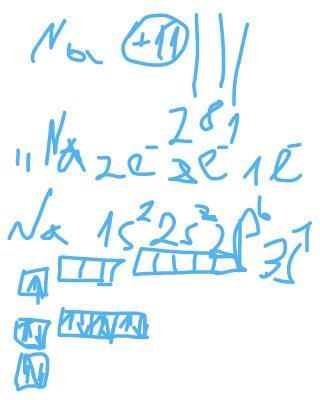 Na +11 ) ) )
2 8 1
11 Na 2e⁻ 8e⁻ 1e⁻
Na 1s² 2s² 2p⁶ 3s¹
↑
↑↓ ↑↓ ↑↓ ↑↓
↑↓